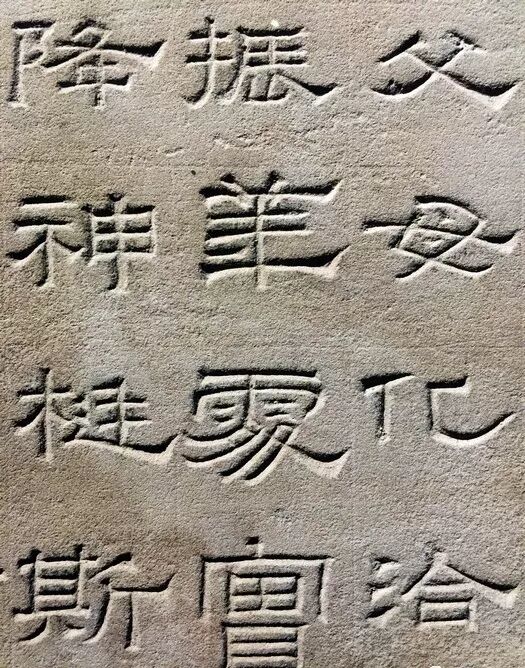 父母化洽
振華實
降神挺斯